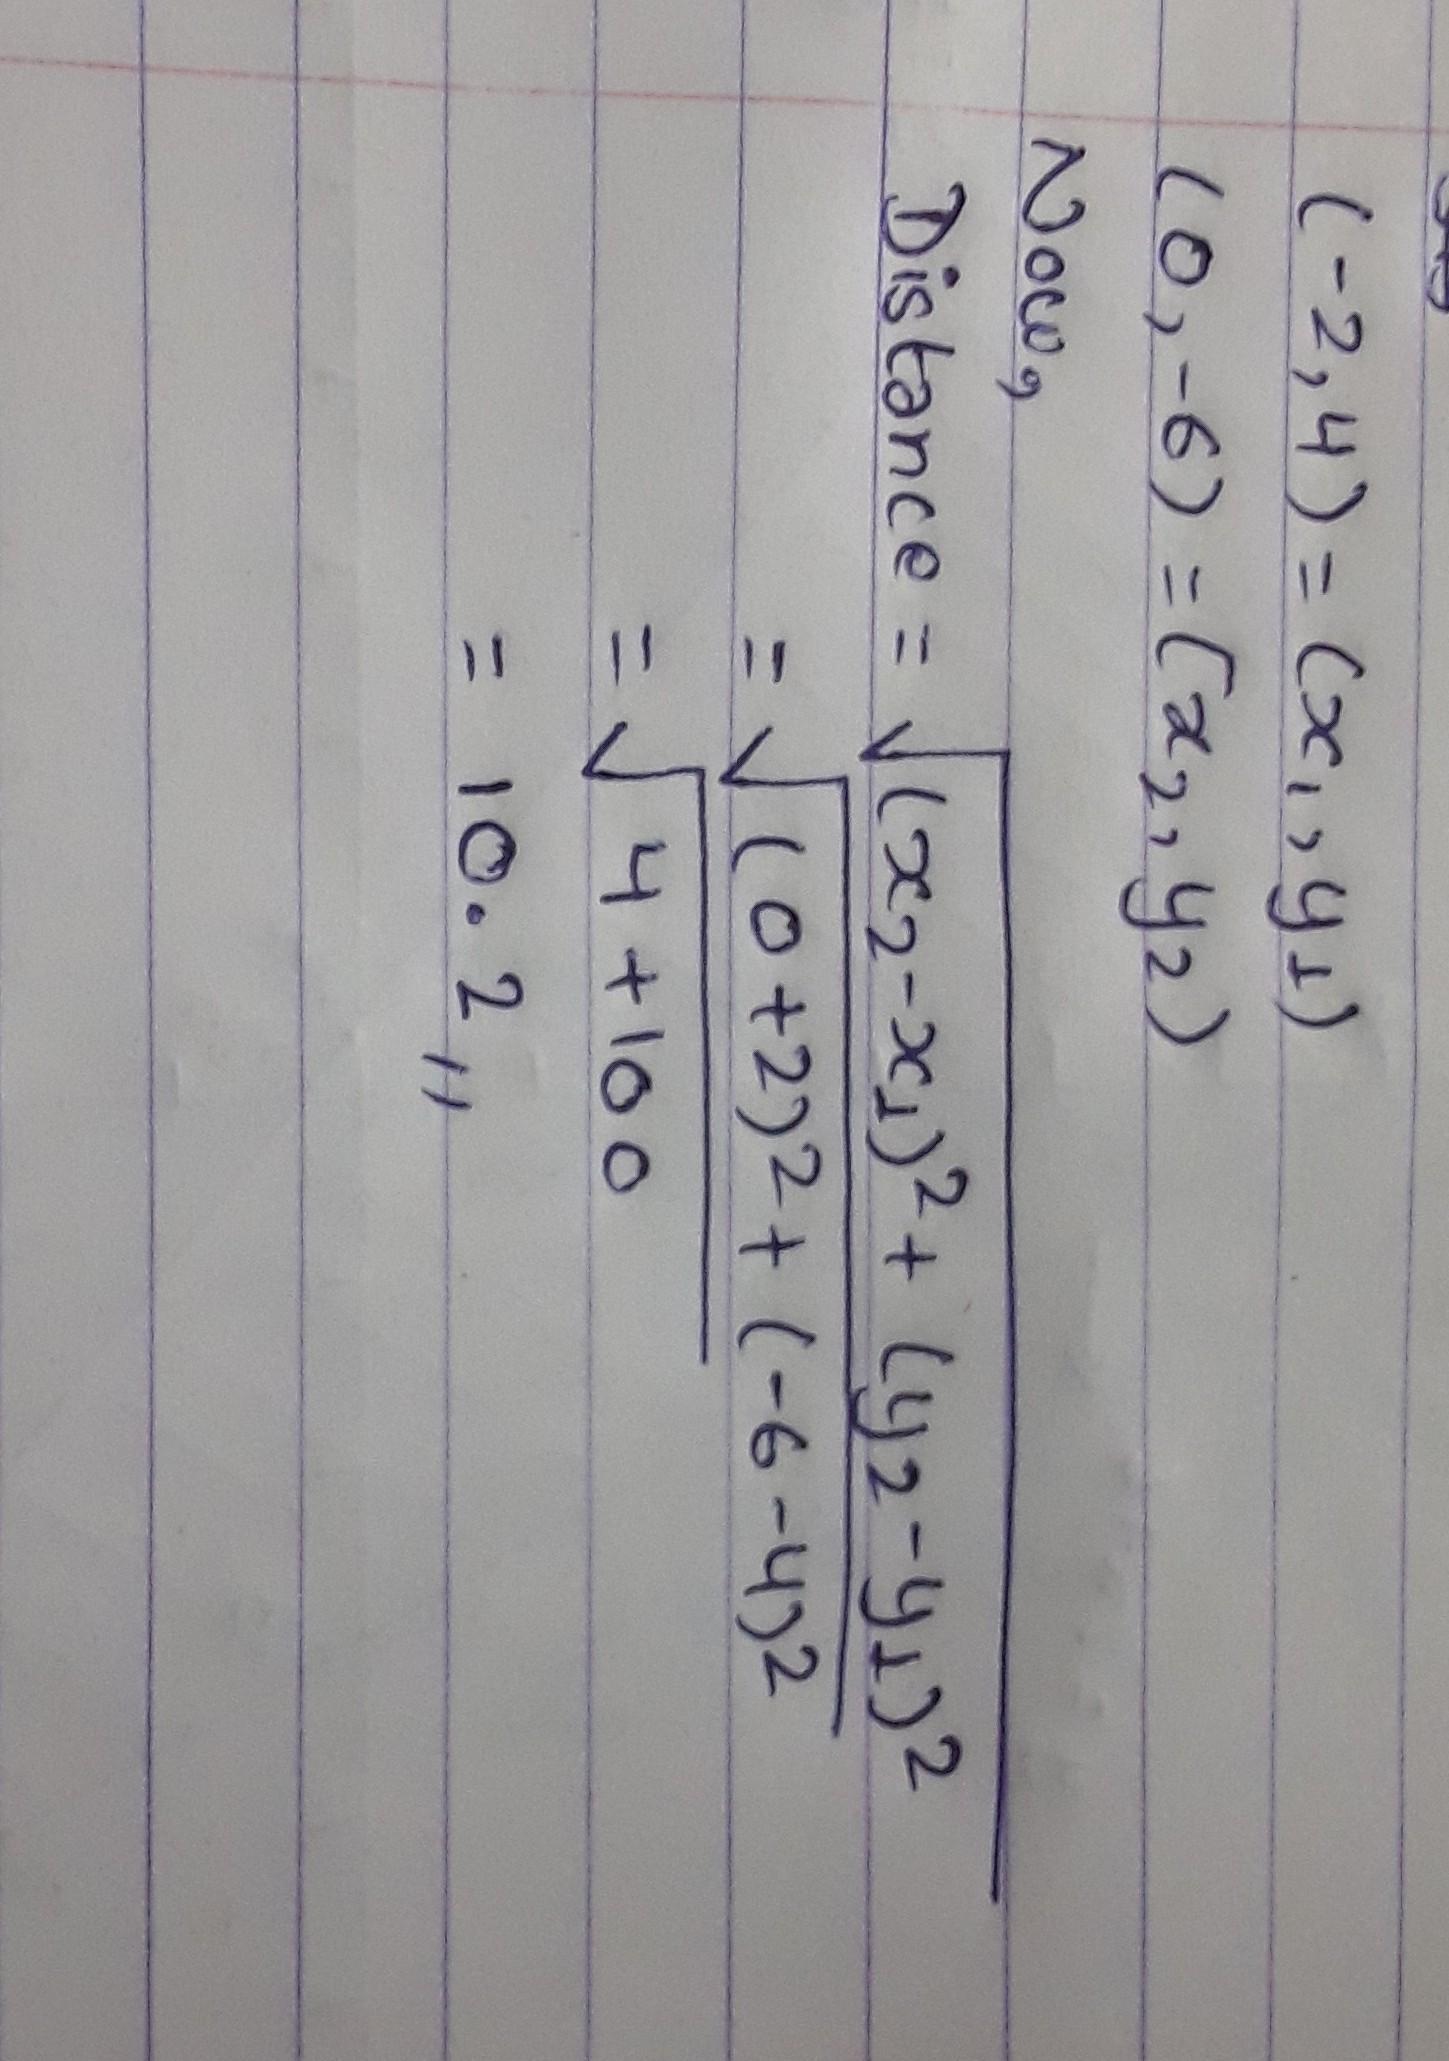 (-2,4) = (x₁,y₁)
(0,-6) = (x₂,y₂)
Now,
Distance = √(x₂-x₁)² + (y₂-y₁)²
= √(0+2)² + (-6-4)²
= √4+100
= 10.2,,